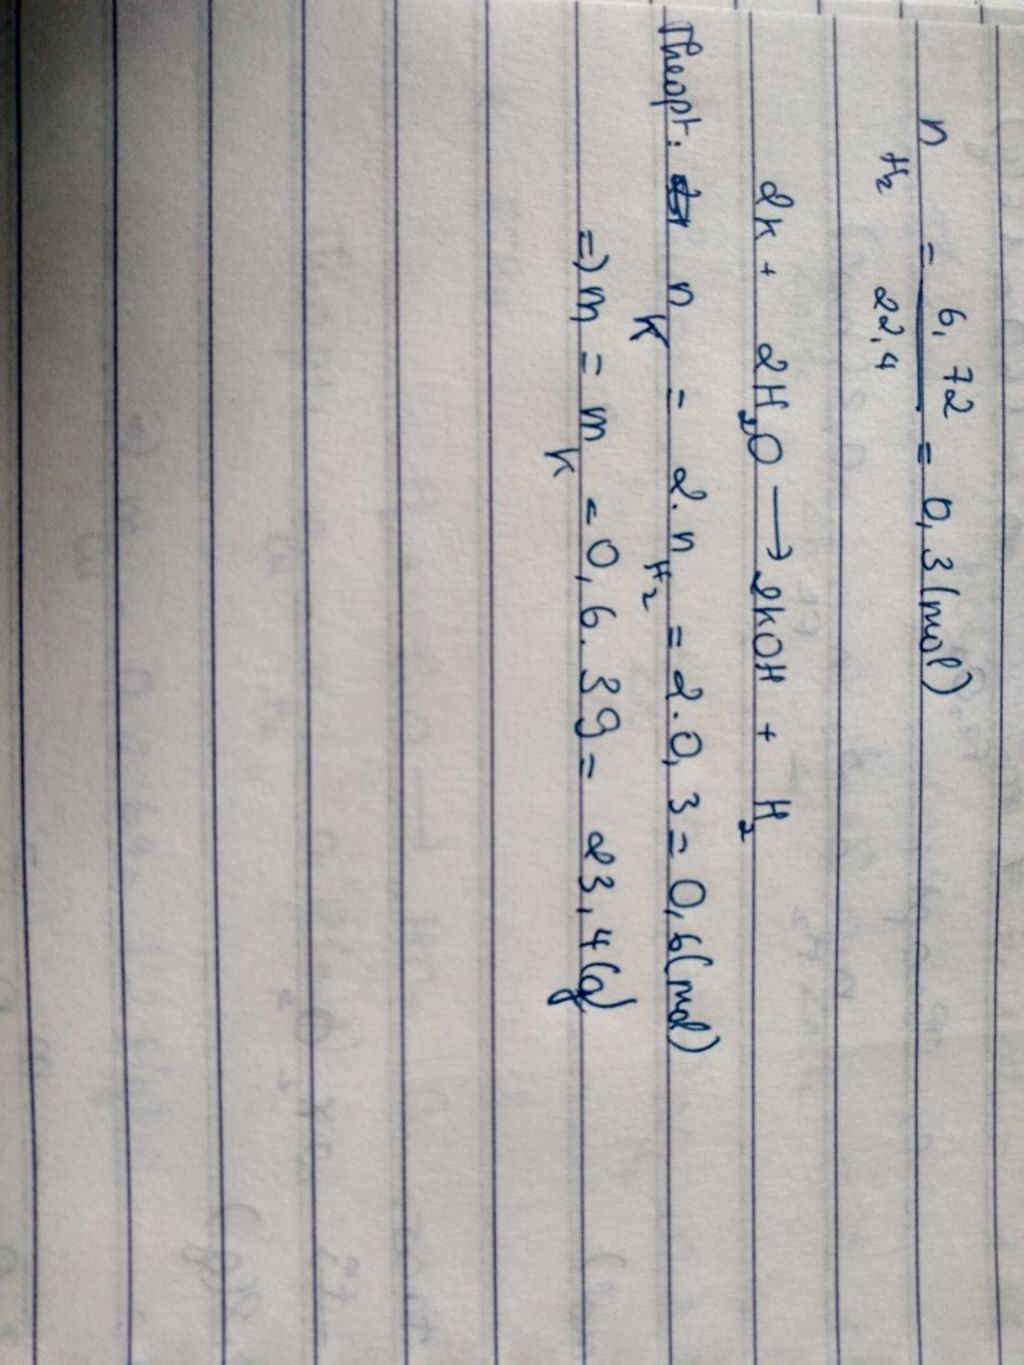 n H₂ = 6,72 / 22,4 = 0,3 (mol)
2K + 2H₂O → 2KOH + H₂
Theo pt: n K = 2.n H₂ = 2.0,3 = 0,6 (mol)
=) m = m K = 0,6.39 = 23,4 (g)